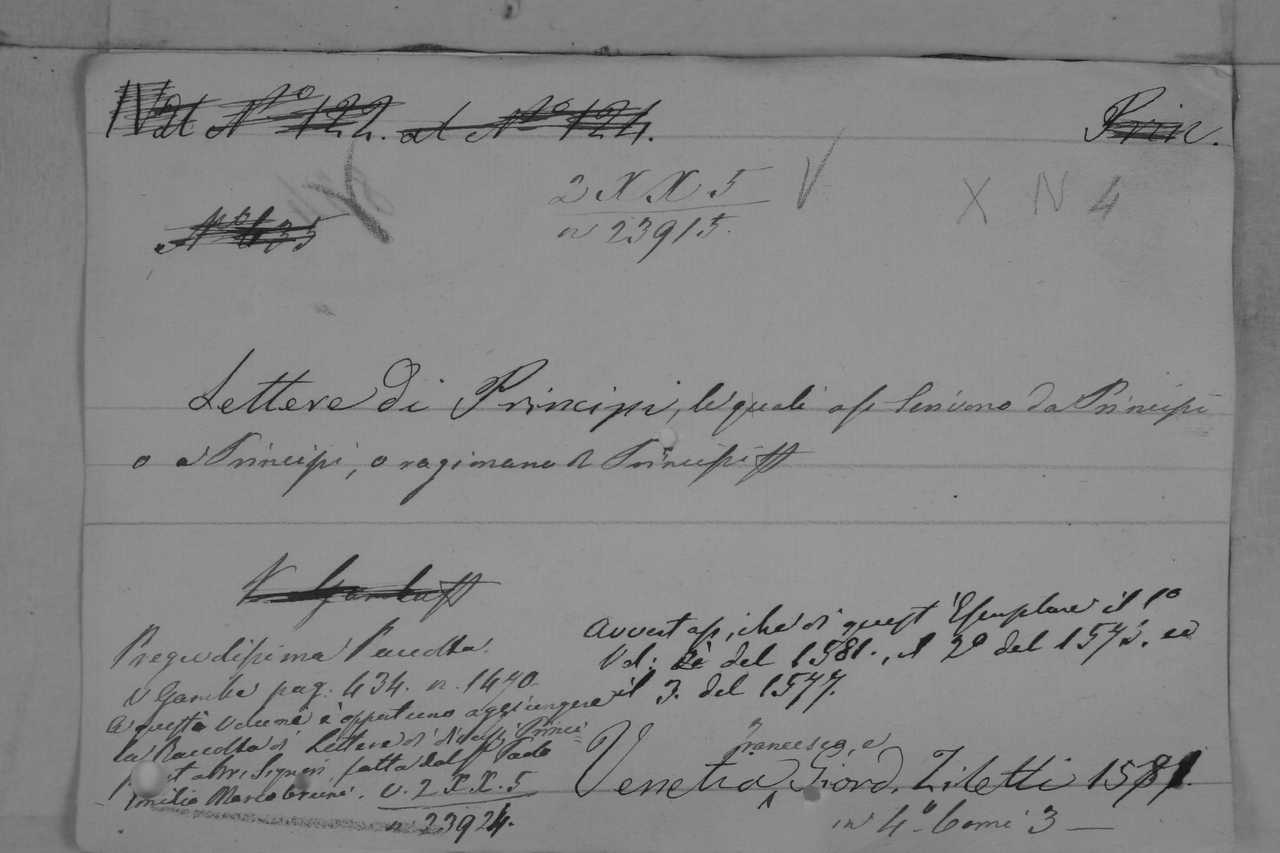 Dal Nº 122. al Nº 124. Prin.
2 X X 5 V X N 4
Nº 635 n 23915.
Lettere di Principi, le quali o si scrivono da Principi
o a Principi, o ragionano di Principi
V Gamba
Pregiudisima Raccolta.
V Gamba pag. 434. n. 1470.
A questo volume è opportuno aggiungere
la Raccolta di Lettere di diversi Princi
pi et altri Signori, fatta dal Paolo
Emilio Marcobruni. v. 2 X X. 5
n 23924.
Avvertasi, che di quest'Esemplare il 1º
Vol: è del 1581., il 2º del 1575. ed
il 3. del 1577.
Francesco, e
Venetia, Giord. Ziletti 1581.
in 4º tomi 3 —